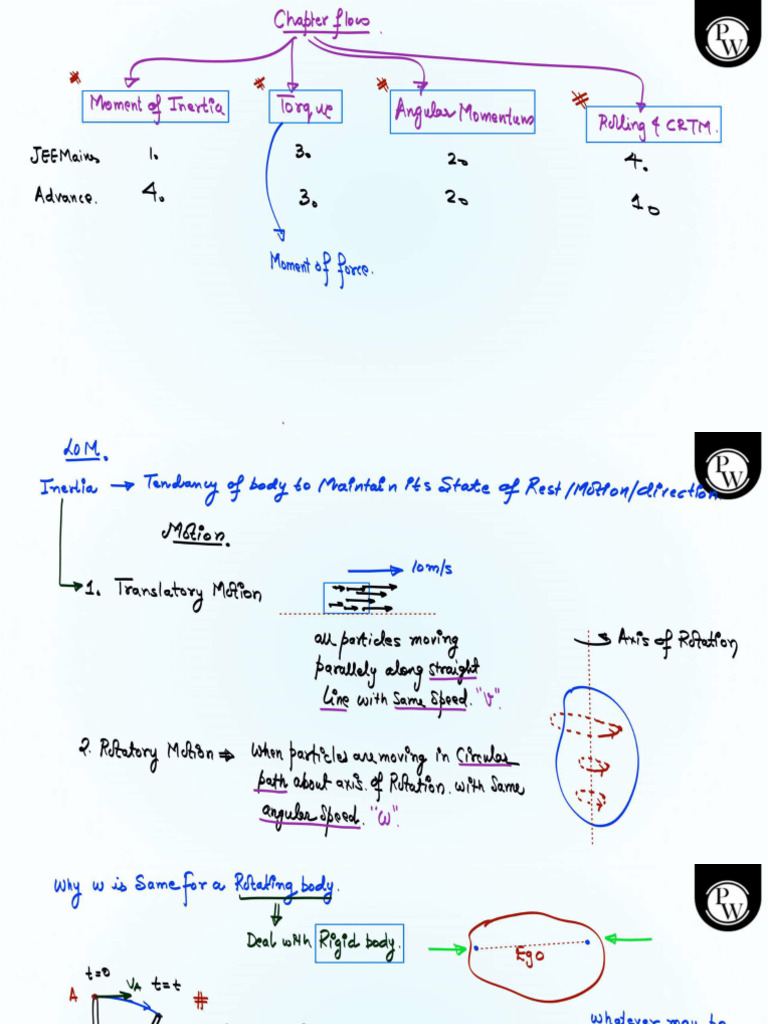 Chapter flow
PW
Moment of Inertia
Torque
Angular Momentum
Rolling & CRTM.
JEE Mains 1. 3. 2. 4.
Advance. 4. 3. 2. 1.
Moment of force.
LOM.
PW
Inertia → Tendancy of body to Maintain its State of Rest/Motion/direction
Motion.
1. Translatory Motion
10 m/s
all particles moving
parallely along straight
Line with Same Speed. "v".
Axis of Rotation
2. Rotatory Motion ⇒ When particles are moving in Circular
path about axis. of Rotation. with Same
angular Speed. "ω".
PW
Why ω is Same for a Rotating body.
Deal with Rigid body.
Ego
t=0
A VA t=t
whatever may be